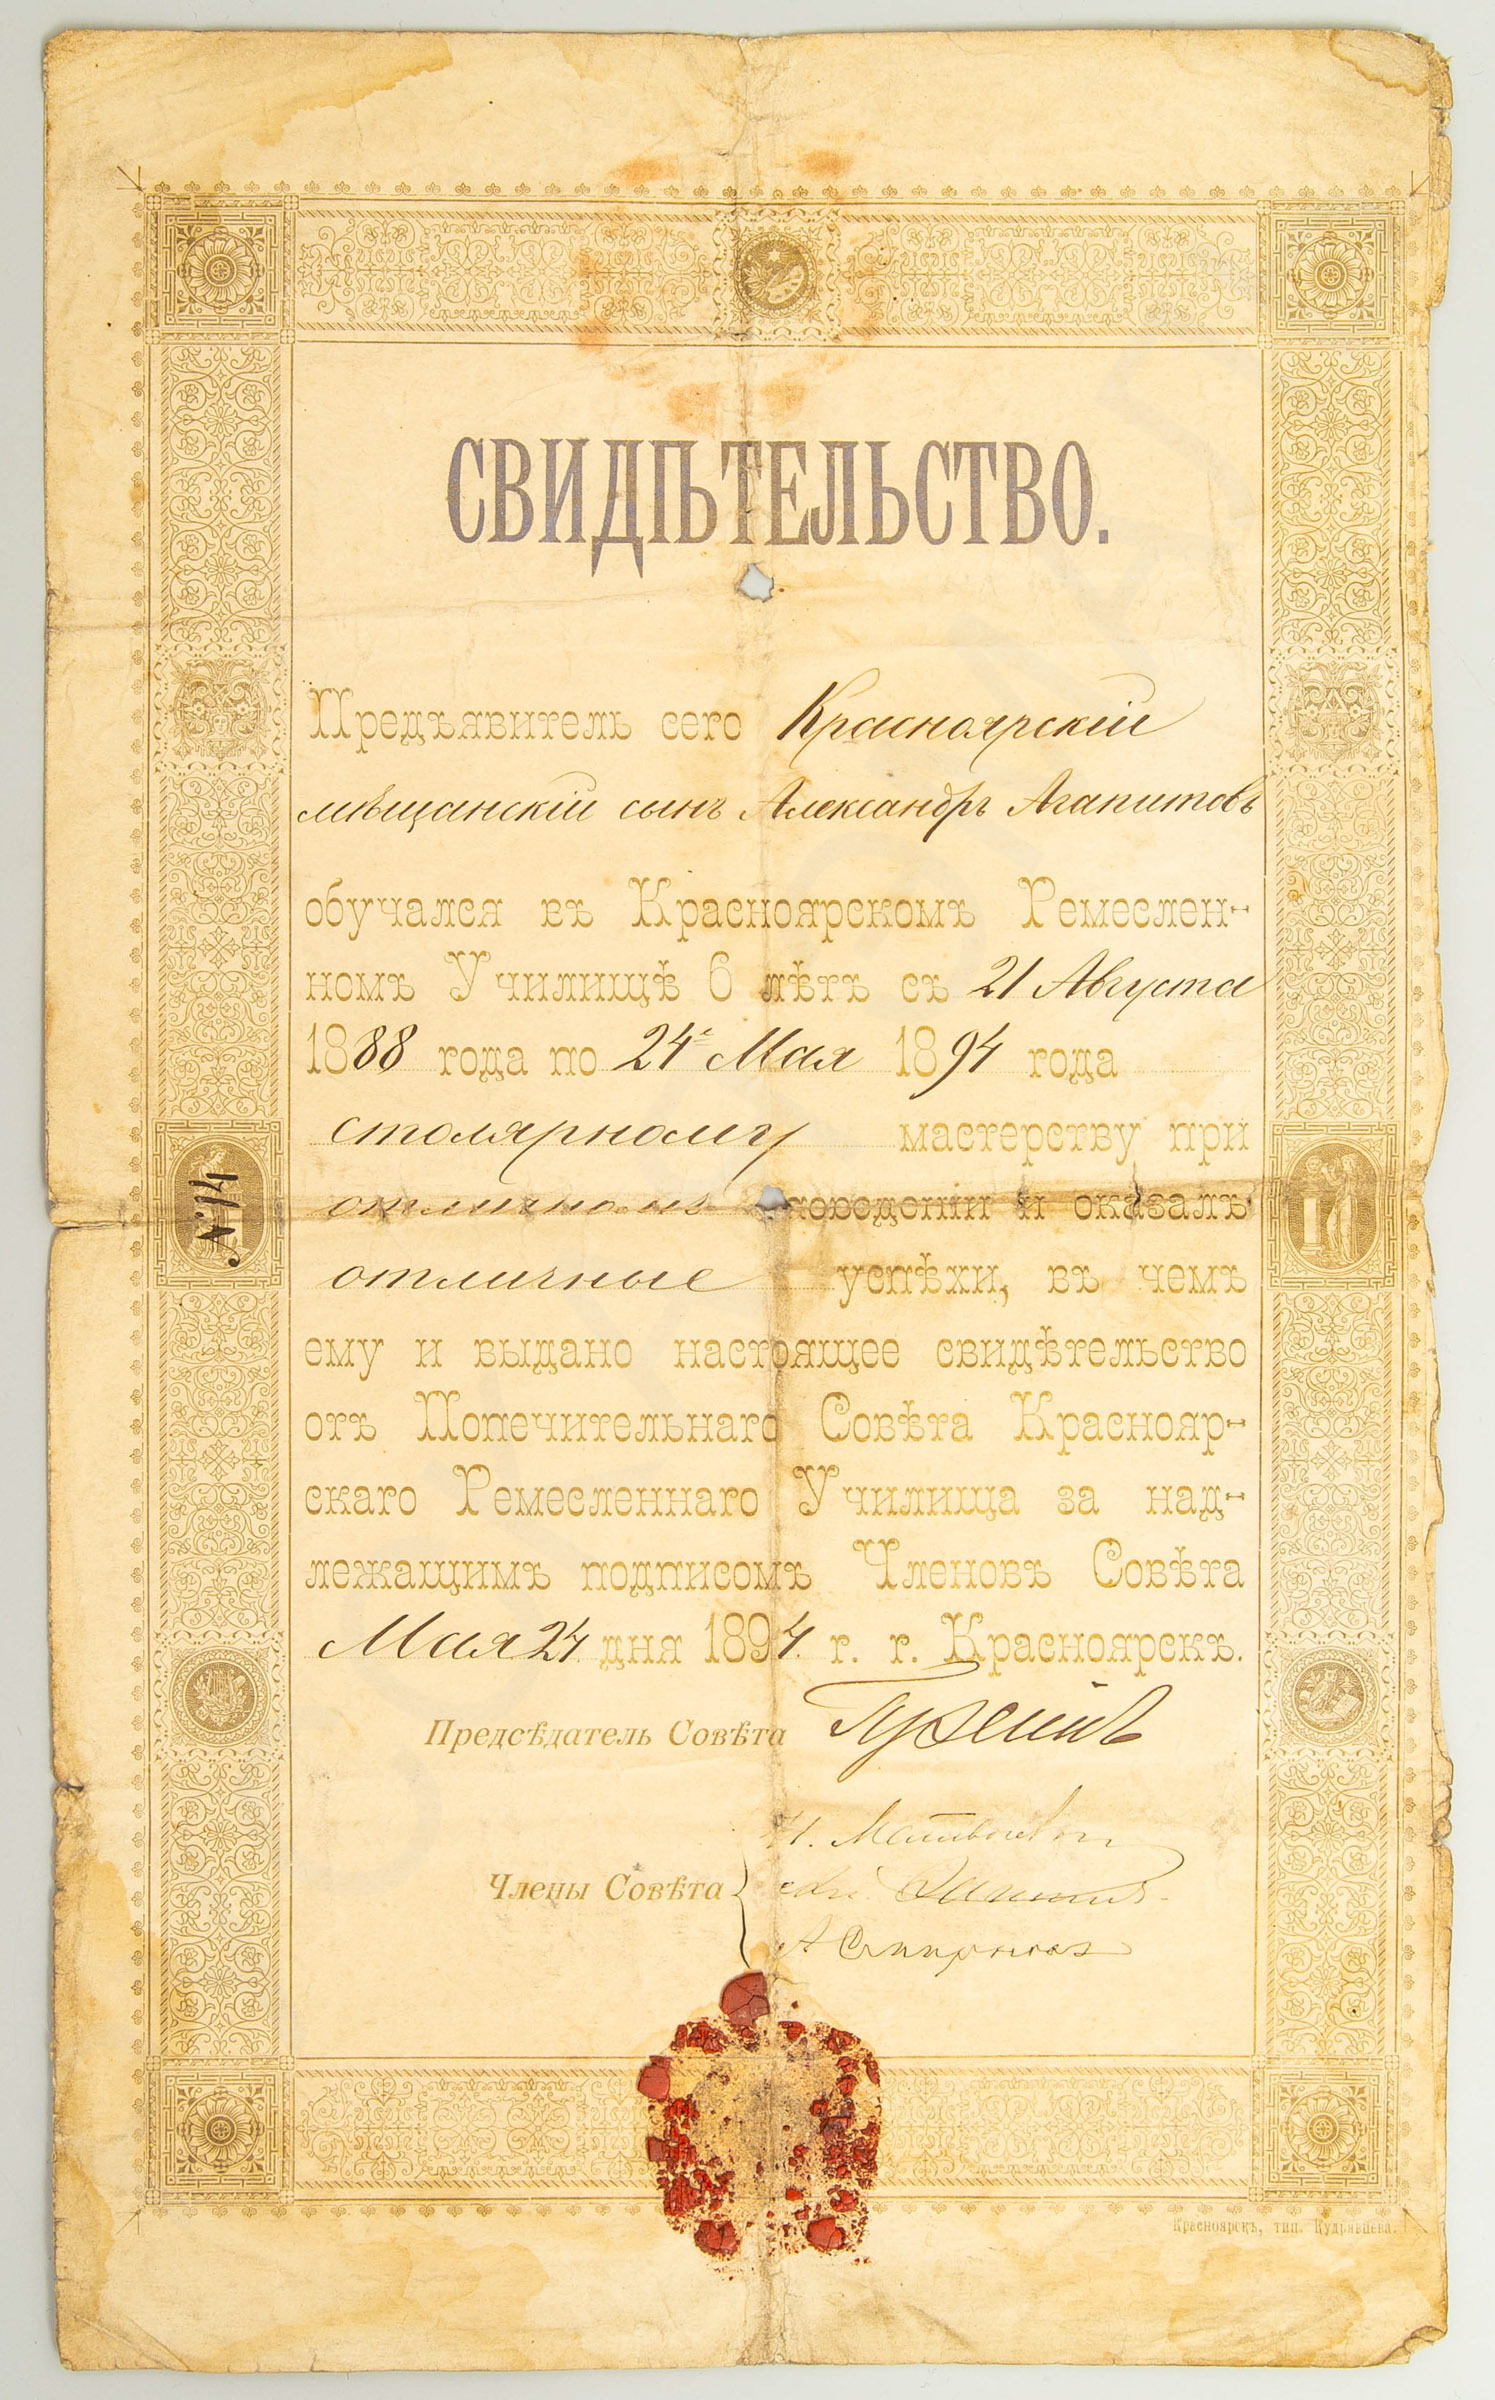 СВИДѢТЕЛЬСТВО.
Предъявитель сего Красноярскій
мѣщанскій сынъ Александръ Агапитовъ
обучался въ Красноярскомъ Ремеслен-
номъ Училищѣ 6 лѣтъ съ 21 Августа
1888 года по 24е Мая 1894 года
столярному мастерству при
отличномъ поведеніи и оказалъ
отличные успѣхи, въ чемъ
ему и выдано настоящее свидѣтельство
отъ Попечительнаго Совѣта Краснояр-
скаго Ремесленнаго Училища за над-
лежащимъ подписомъ Членовъ Совѣта
Мая 24 дня 1894 г. г. Красноярскъ.
Предсѣдатель Совѣта
Члены Совѣта
А Смирновъ
№ 14
Красноярскъ, тип. Кудрявцева.